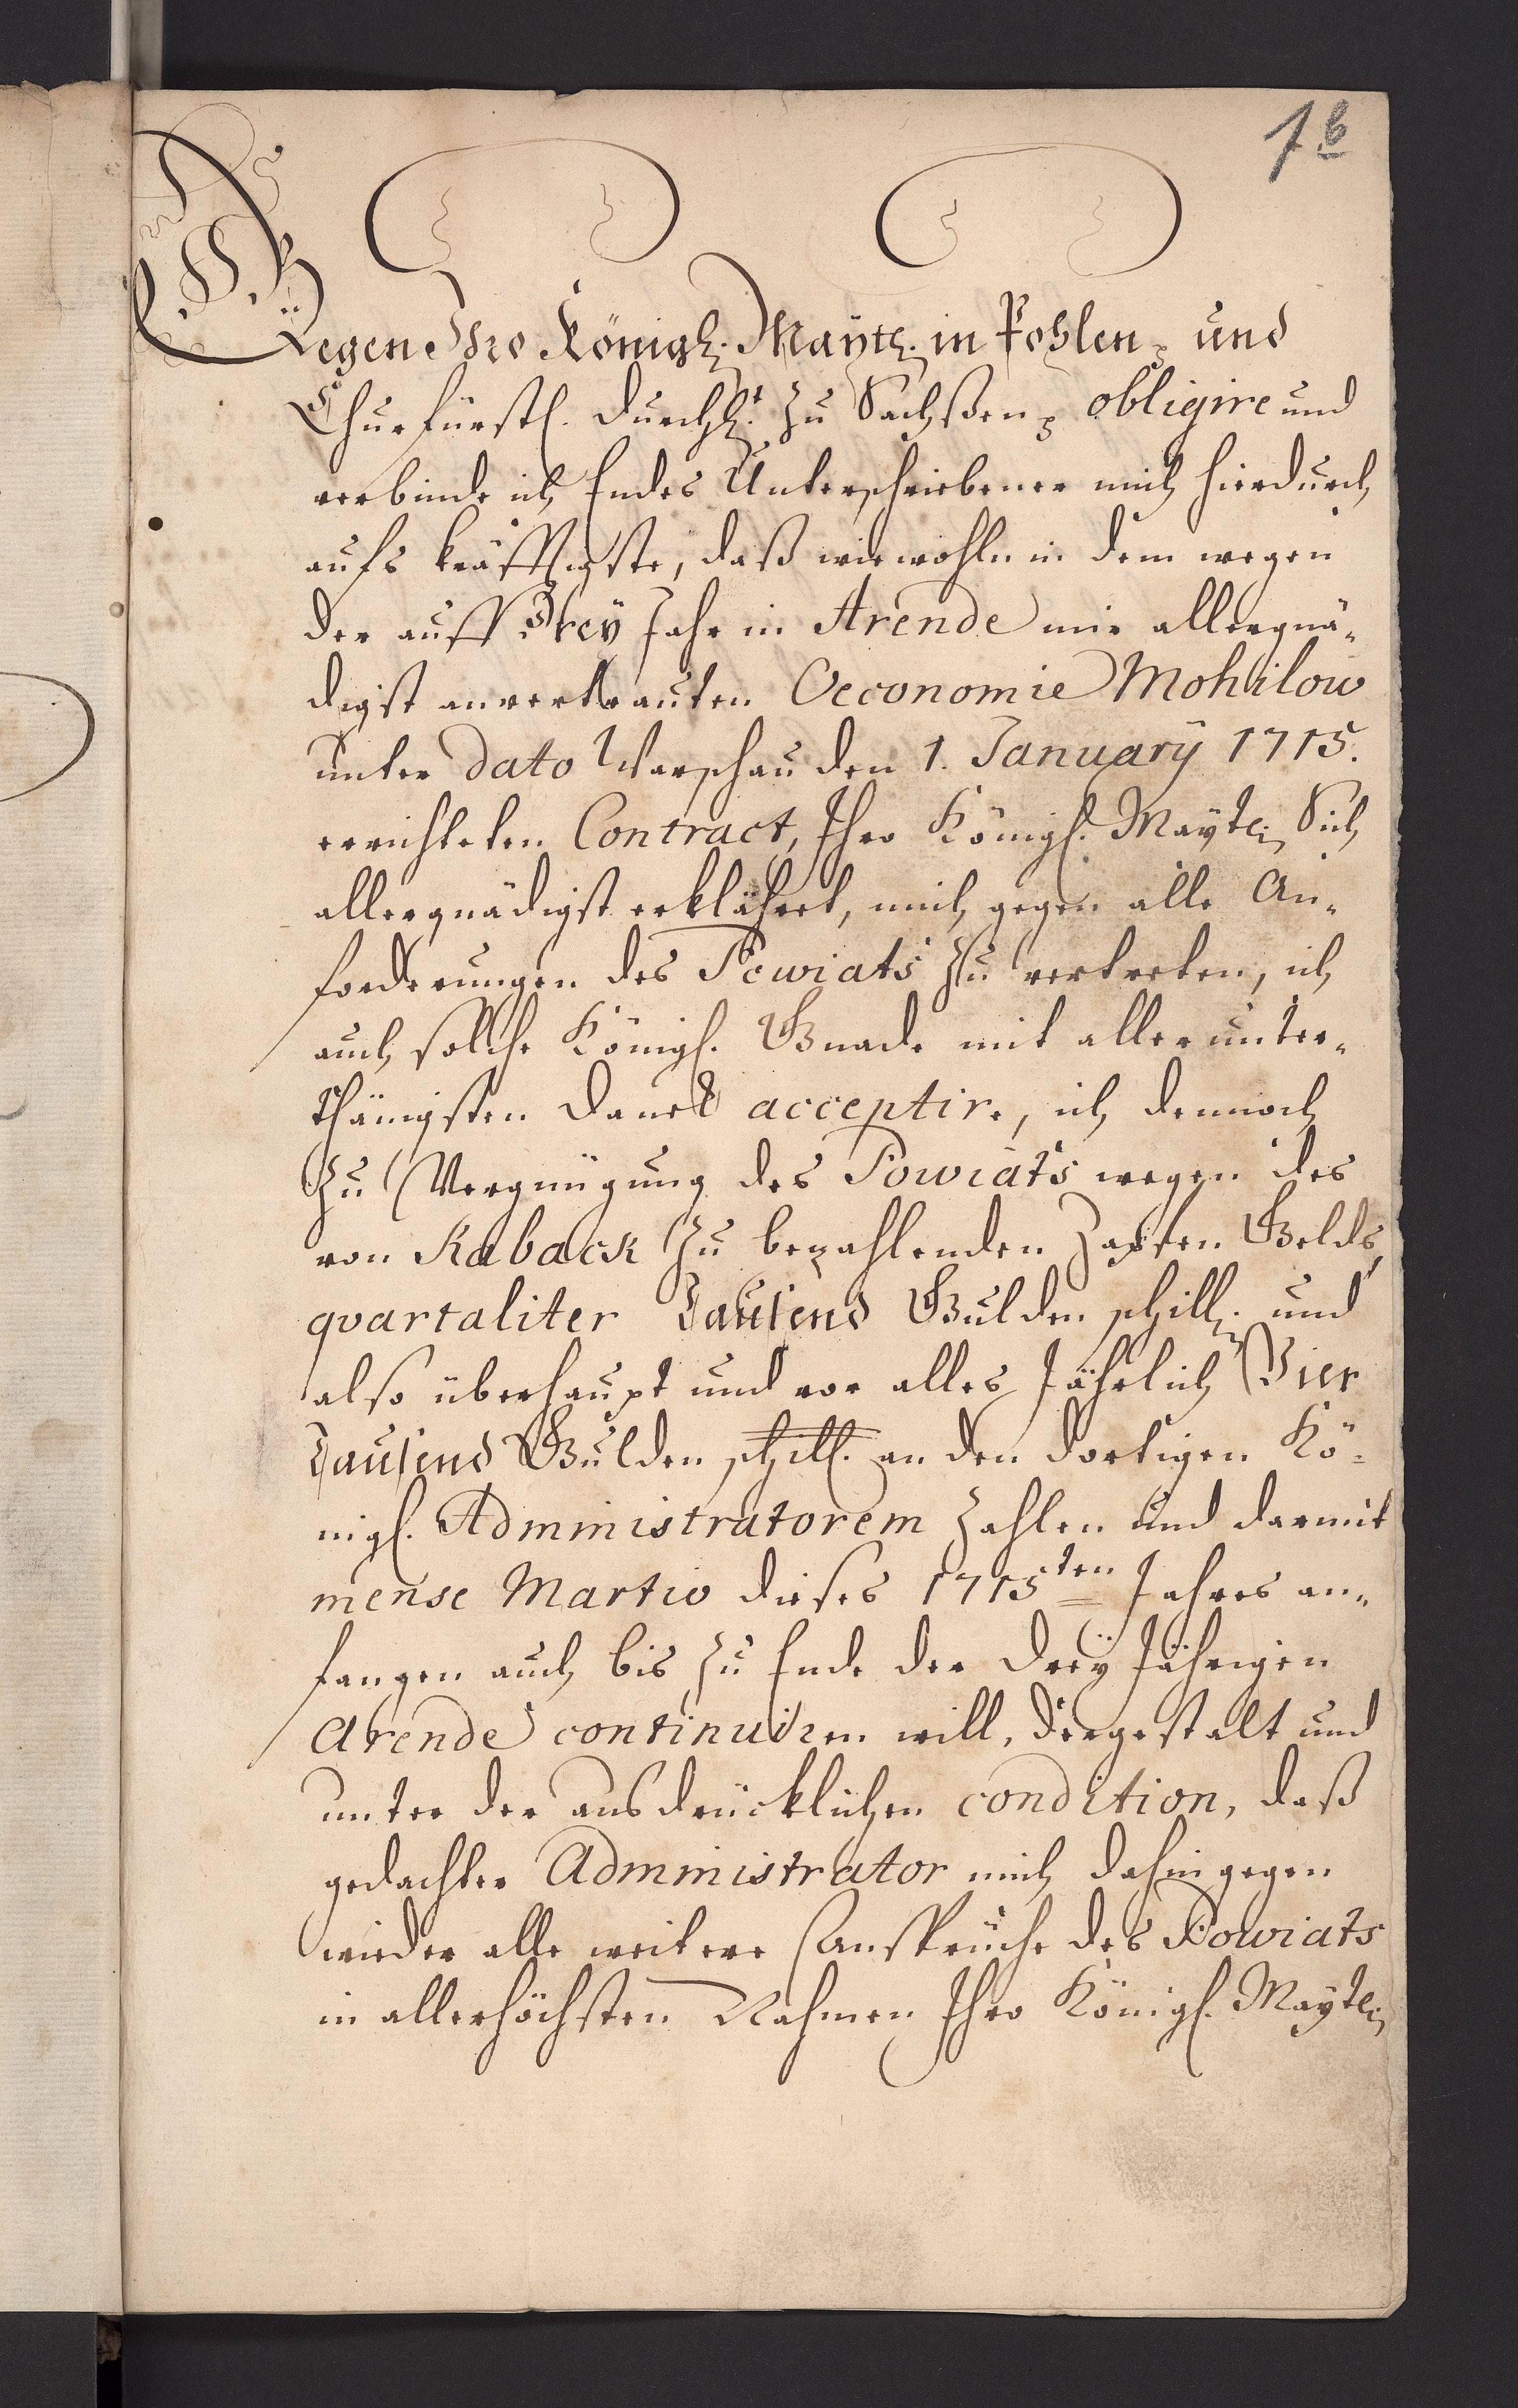 1b
Gegen Ihro Königl. Maytt. in Pohlen und
Churfürstl. Durchl.t zu Sachßen obligire und
verbinde ich Endes Unterschriebener mich hierdurch
aufs kräfftigste, daß wiewohln in dem wegen
der auff Drey Jahr in Arende mir allergnä¬
digst anvertrauten Oeconomie Mohilow
unter dato Warschau den 1. January 1715.
errichteten Contract, Ihro Königl. Mayt. Sich
allergnädigst erklährt, mich gegen alle An¬
forderungen des Powiats zu vertreten, ich
auch solche Königl. Gnade mit allerunter¬
thänigsten Danck acceptire, ich dennoch
zu Vergnügung des Powiats wegen des
von Kaback zu bezahlenden Zapfen Gelds,
qvartaliter Tausend Gulden schill. und
also überhaupt und vor alles Jährlich Vier
Tausend Gulden schill. an den dortigen Kö¬
nigl. Administratorem zahlen und darmit
mense Martio dieses 1715ten Jahres an¬
fangen auch bis zu Ende der Drey Jährigen
Arende continuiren will, dergestalt und
unter der ausdrücklichen condition, daß
gedachter Administrator mich dahingegen
wieder alle weitere Ansprüche des Powiats
in allerhöchsten Nahmen Ihro Königl. Mayt.